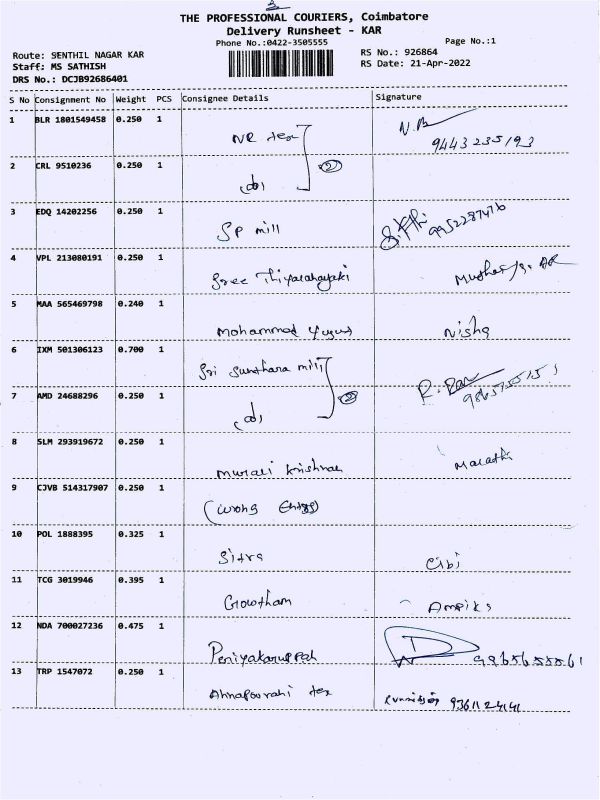 THE PROFESSIONAL COURIERS, Coimbatore
Delivery Runsheet - KAR
Phone No.:0422-3505555
Page No.:1
Route: SENTHIL NAGAR KAR
Staff: MS SATHISH
DRS No.: DCJB92686401
RS No.: 926864
RS Date: 21-Apr-2022
S No Consignment No Weight PCS Consignee Details Signature
1 BLR 1801549458 0.250 1 NR tex N.B
9443235193
2 CRL 9510236 0.250 1 (do) 2
3 EDQ 14202256 0.250 1 SP mill 9952287476
4 VPL 213080191 0.250 1 Sree
5 MAA 565469798 0.240 1 Mohammed Nisha
6 IXM 501306123 0.700 1 Sri Sunthara mill
7 AMD 24688296 0.250 1 (do) 2 R.
8 SLM 293919672 0.250 1 murali krishnan
9 CJVB 514317907 0.250 1 (wrong
10 POL 1888395 0.325 1 Sitra Cibi
11 TCG 3019946 0.395 1 Gowtham
12 NDA 700027236 0.475 1 Periyakaruppah
13 TRP 1547072 0.250 1 Annapoorani tex